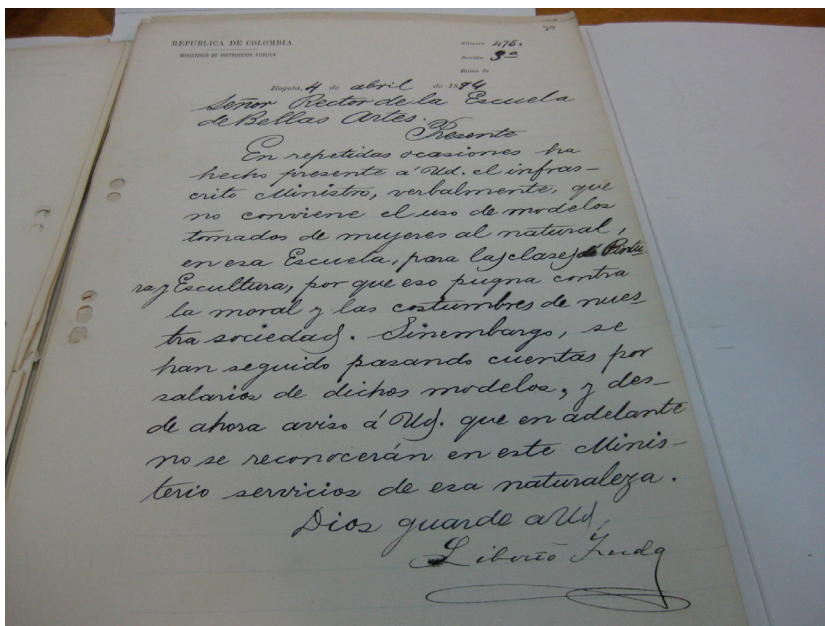 REPUBLICA DE COLOMBIA
MINISTERIO DE INSTRUCCION PUBLICA
Número 476.
Sección 3ª
Ramo de
Bogotá, 4 de abril de 1894
Señor Rector de la Escuela
de Bellas Artes.
Presente
En repetidas ocasiones ha
hecho presente á Ud. el infras-
crito Ministro, verbalmente, que
no conviene el uso de modelos
tomados de mujeres al natural,
en esa Escuela, para las clases de Pintu
ra y Escultura, por que eso pugna contra
la moral y las costumbres de nues-
tra sociedad. Sinembargo, se
han seguido pasando cuentas por
salarios de dichos modelos, y des-
de ahora aviso á Ud. que en adelante
no se reconocerán en este Minis-
terio servicios de esa naturaleza.
Dios guarde a Ud,
Liborio Zerda